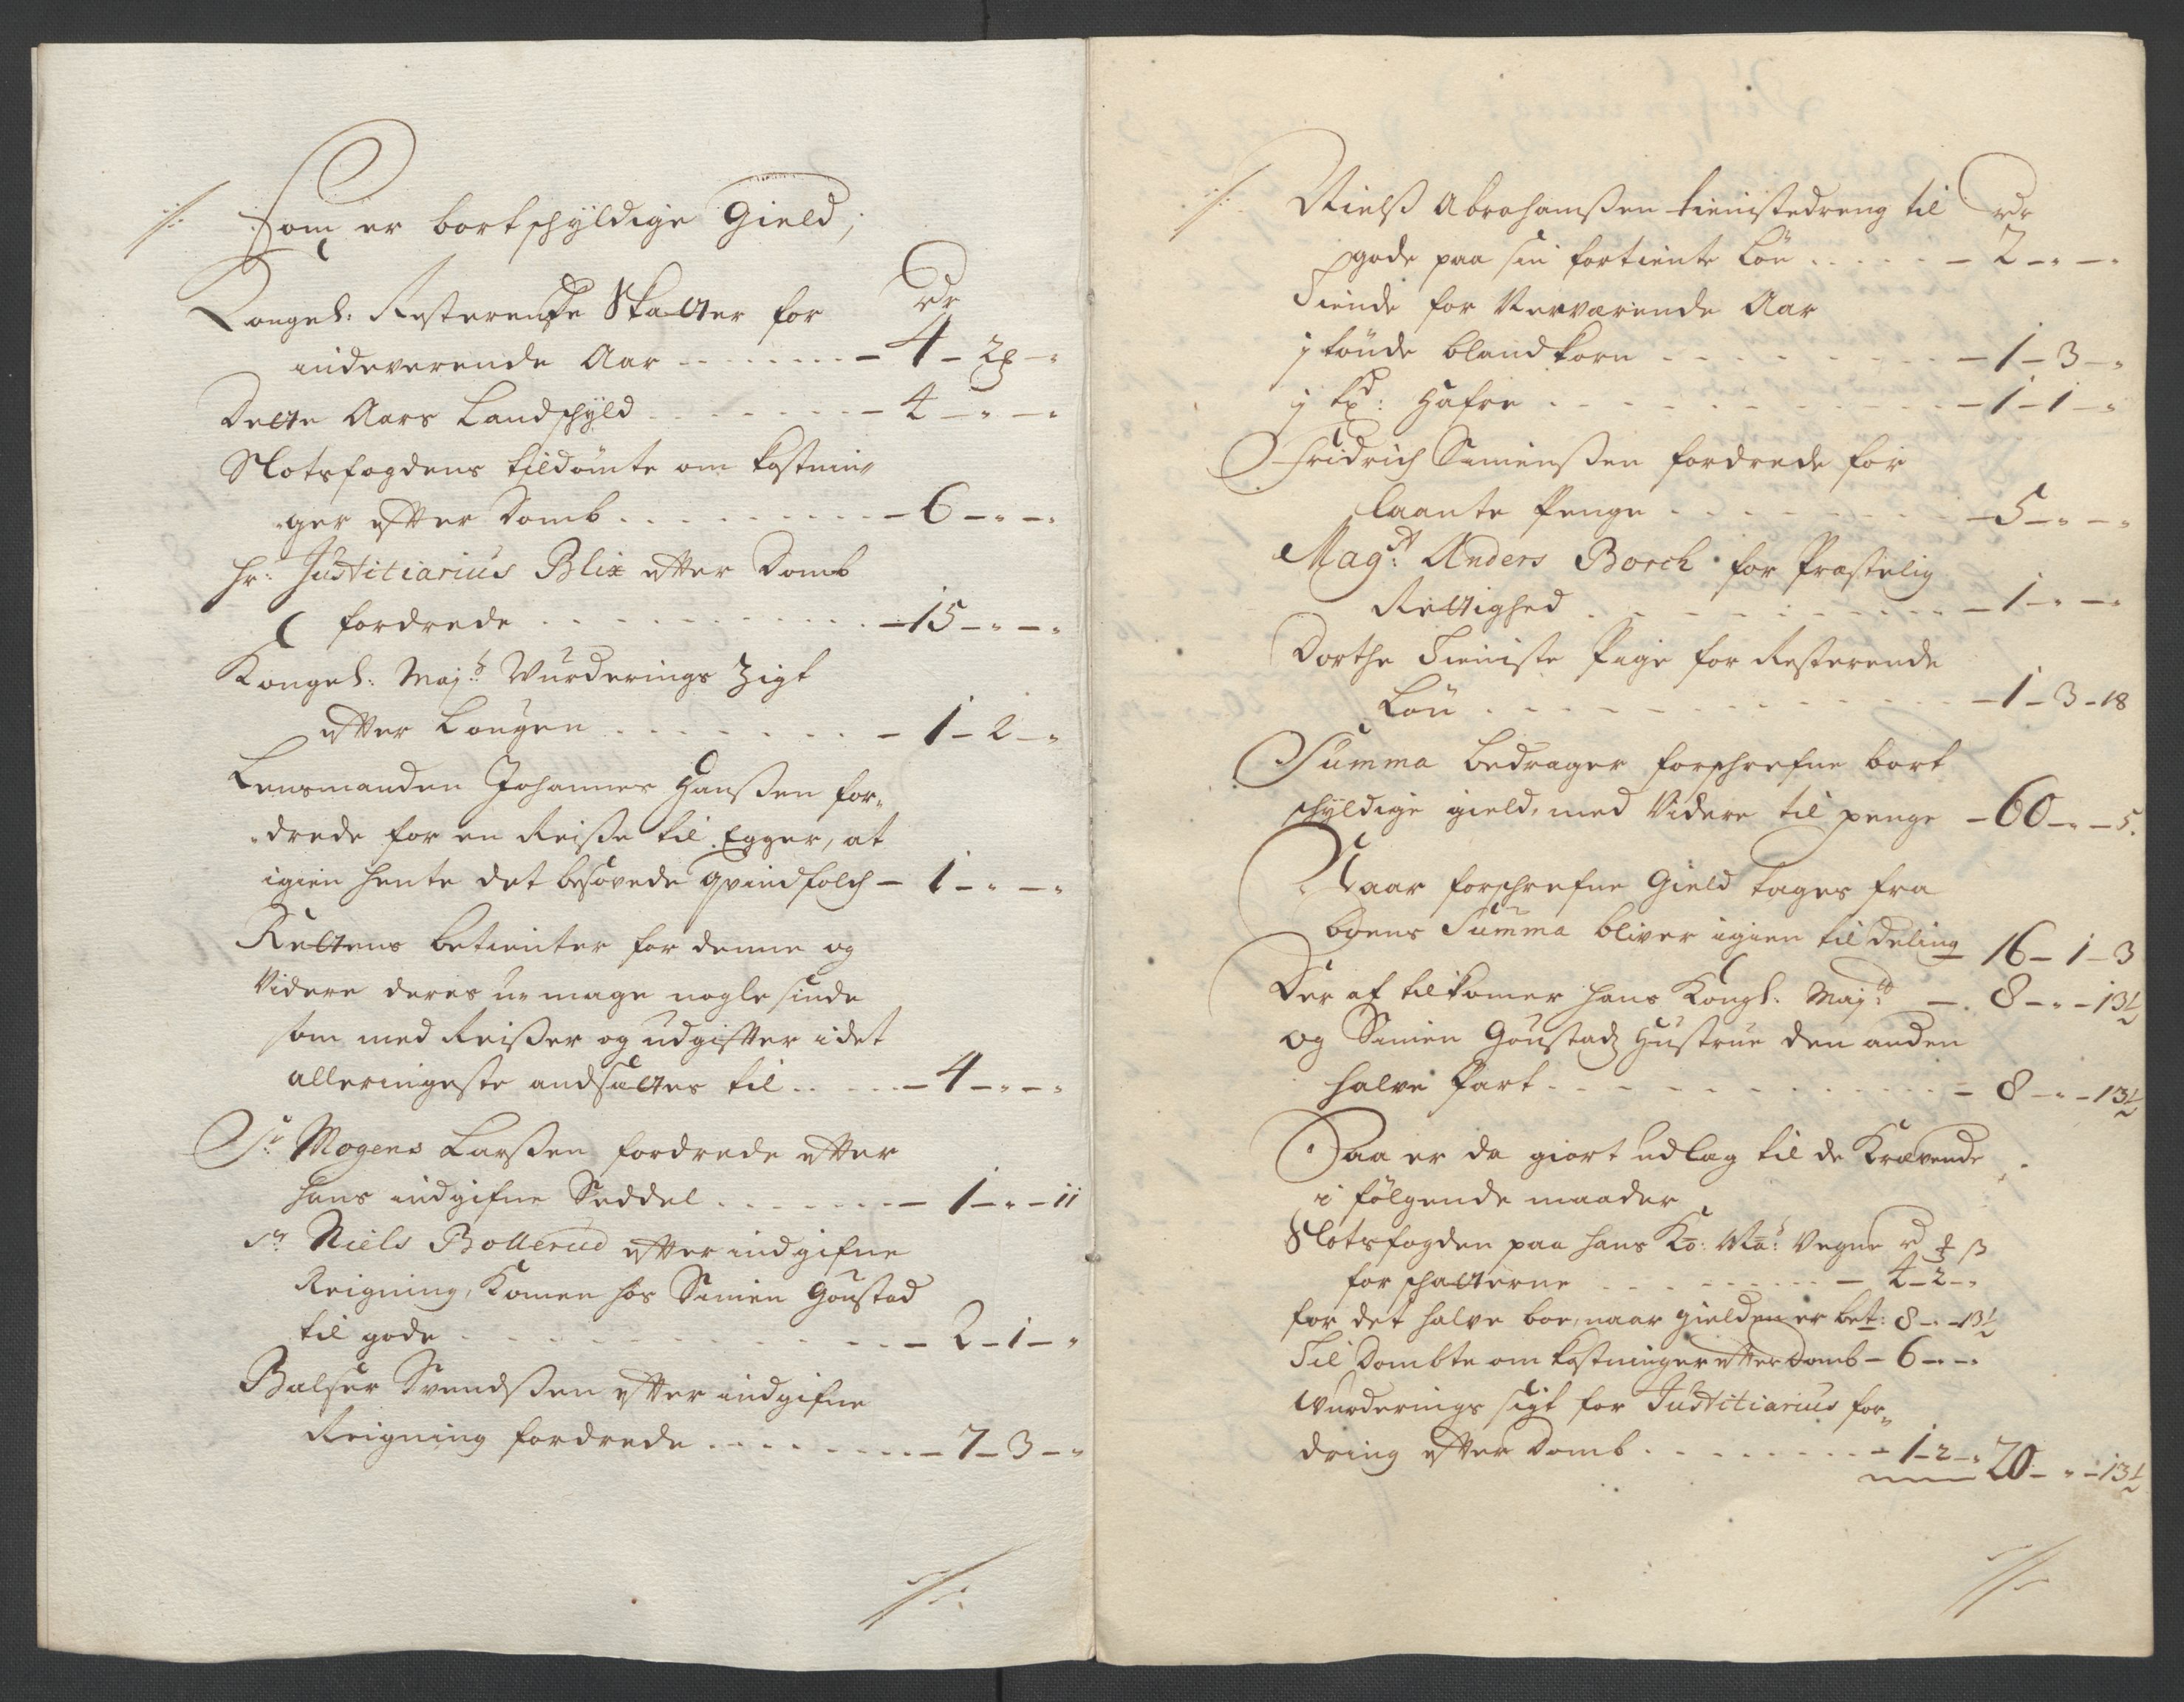 Som er bortschÿldige Gield,
Rdr
Kongel: Resterende Skatter for
indeverende Aar - 4 - 2 - "
Dette Aars Landschÿld - 4 - " - "
Slotsfogdens tildömte om kostnin„
ger efter Domb - 6 - " - "
Hr: Justitiarius Blix efter Domb
fordrede - 15 - " - "
Kongel: Maj:ts Vurderings Sigt
efter Lougen - 1 - 2 - "
Lensmanden Johannes Hanssen for„
drede for en Reisse til Egger, at
igien hente det besovede qvindfolch - 1 - " - "
Rettens betienter for denne og
Videre deres u-mage nogle sinde
som med Reisser og udgifter i det
alleringeste andsættes til - 4 - " - "
Sr: Mogens Larssen fordrede efter
hans indgifne Seddel - 1 - " - 11
Sr Niels Bollerud efter indgifne
Reigning, Komen hos Simen Goustad
til gode - 2 - 1 - "
Balser Svendssen efter indgifne
Reigning fordrede - 7 - 3 - "
Nielss Abrahamssen tienistedreng til Rdr
gode paa sin fortiente Lön - 2 - " - "
Tiende for Nerværende Aar
j tönde blandkorn - 1 - 3 - "
j td: Hafre - 1 - 1 - "
Fridrich Simenssen fordrede for
laante Penge - 5 - " - "
Mag:r Anders Borch for Præstelig
Rettighed - 1 - " - "
Dorthe Tieniste Pige for Resterende
Lön - 1 - 3 - 18
Summa bedrager forschrefne bort
schÿldige gield, med Videre til penge - 60 - " - 5.
Naar forschrefne Gield tages fra
boens Summa bliver igien til deling - 16 - 1 - 3
Der af tilkomer hans Kongl: Maj:tt - 8 - " - 13½
og Simen Goustads Hustrue den anden
halve Part - 8 - " - 13½
Saa er da giort udlag til de Krævende
i fölgende maader
Slotsfogden paa hans Ko: Ma:s Vegne rd ß
for schatterne - 4 - 2 - "
for det halve boe, naar gielden er bet: 8 - " - 13½
Til Dombte om kostninger efter Domb - 6 - " - "
Wurderings sigt for Justitiarius for„
dring efter Domb - 1 - 2 - " 20 - " - 13½